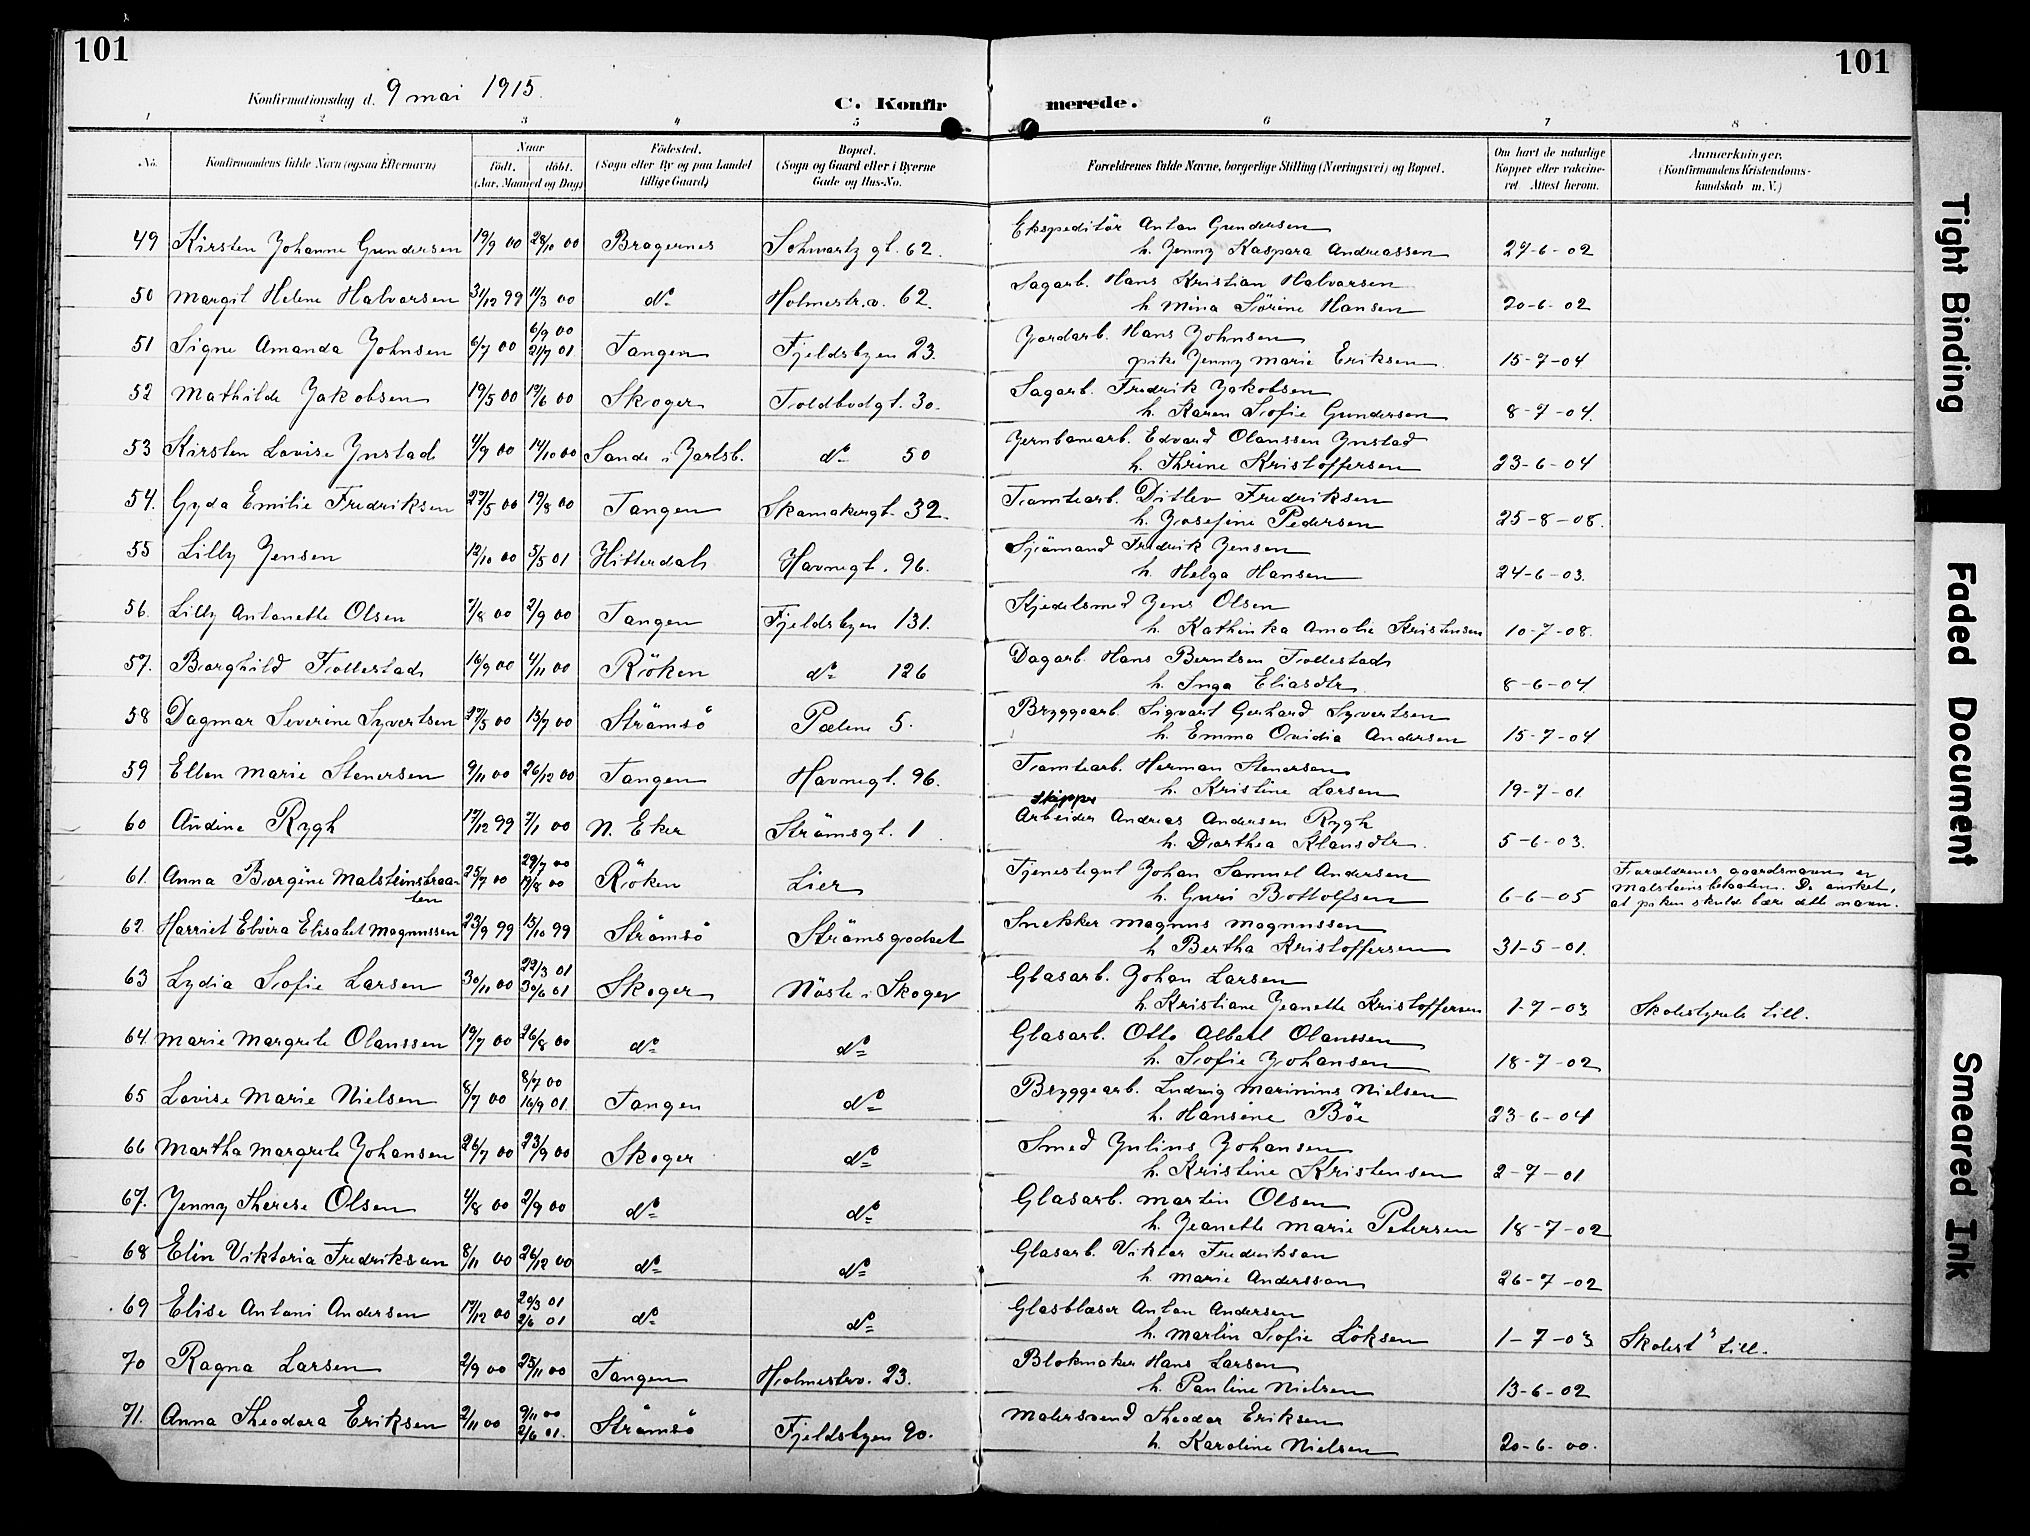 101
101
Konfirmationsdag d. 9 mai 1915.
C. Konfirmerede.
1 2 3 4 5 6 7 8
No.
Konfirmandens fulde Navn (ogsaa Efternavn)
Naar
født. døbt.
(Aar, Maaned og Dag)
Fødested.
(Sogn eller By og paa Landet
tillige Gaard)
Bopæl.
(Sogn og Gaard eller i Byerne
Gade og Hus-No.
Forældrenes fulde Navne, borgerlige Stilling (Næringsvei) og Bopæl.
Om havt de naturlige
Kopper eller vakcine-
ret Attest herom.
Anmærkninger.
(Konfirmandens Kristendoms-
kundskab m. V.)
49 Kirsten Johanne Gundersen 19/9 00 28/10 00 Bragernes Schwartz gt. 62. Ekspeditör Anton Gundersen
h. Jenny Kaspara Andreassen 27-6-02
50 Margit Helene Halvorsen 31/12 99 11/3 00 do Holmestr.v. 62. Sagarb. Hans Kristian Halvorsen
h. Mina Sörine Hansen 20-6-02
51 Signe Amanda Johnsen 6/7 00 6/9 00 21/7 01 Tangen Fjeldsbyen 23. Jordarb. Hans Johnsen
pike Jenny Marie Eriksen 15-7-04
52 Mathilde Jakobsen 19/5 00 17/6 00 Skoger Toldbodgt. 30. Sagarb. Fredrik Jakobsen
h. Karen Sofie Gundersen 8-7-04.
53 Kirsten Lovise Ynstad 4/9 00 14/10 00 Sande i Jarlsb. do 50 Jernbanearb. Edvard Olanssen Ynstad
h. Thrine Kristoffersen 23-6-04
54. Gyda Emilie Fredriksen 27/5 00 19/8 00 Tangen Skomakergt. 32. Tomtearb. Ditlev Fredriksen
h. Josefine Pedersen 25-8-08.
55 Lilly Jensen 12/10 00 5/5 01 Hitterdal Havnegt. 96. Sjömand Fredrik Jensen
h. Helga Hansen 24-6-03.
56. Lilly Antonette Olsen 7/8 00 2/9 00 Tangen Fjeldsbyen 131. Kjedelsmed Jens Olsen
h. Kathinka Amalie Kristensen 10-7-08.
57. Borghild Follestad 16/9 00 4/11 00 Röken do 126 Dagarb. Hans Berntsen Follestad
h. Inga Eliasdtr 8-6-04
58 Dagmar Severine Syvertsen 27/5 00 15/7 00 Strömsö Pælene 5. Bryggearb. Sigvart Gerhard Syvertsen
h. Emma Ovidia Andersen 15-7-04
59 Ellen Marie Stenersen 9/11 00 26/12 00 Tangen Havnegt. 96. Tomtearb. Herman Stenersen
h. Kristine Larsen 19-7-01
skipper
60 Andine Rygh 17/12 99 7/1 00 N. Eker Strömsgt. 1 Arbeider Andreas Andersen Rygh
h. Dorthea Klausdtr. 5-6-03.
61. Anna Borgine Malsteinsbraa-
ten 25/7 00 29/7 00 19/8 00 Röken Lier Tjenestegut Johan Samuel Andersen
h. Guri Bottolfsen 6-6-05 Forældrenes gaardsnavn er
Malsteinsbraaten. De ønsket,
at piken skulde bære dette navn.
62. Harriet Elvira Elisabet Magnussen 23/9 99 15/10 99 Strömsö Strömsgodset Snekker Magnus Magnussen
h Bertha Kristoffersen 31-5-01.
63 Lydia Sofie Larsen 30/11 00 22/3 01 30/6 01 Skoger Nöste i Skoger Glasarb. Johan Larsen
h. Kristiane Jeanette Kristoffersen 1-7-03 Skolestyrets till.
64 Marie Margrete Olanssen 19/7 00 26/8 00 do do Glasarb. Otto Albert Olanssen
h. Sofie Johansen 18-7-02
65 Lovise Marie Nielsen 8/7 00 8/7 00 16/9 01. Tangen do Bryggearb. Ludvig Marinius Nielsen
h. Hansine Böe 23-6-04
66 Martha Margrete Johansen 26/7 00 23/9 00 Skoger do Smed Julius Johansen
h. Kristine Kristensen 2-7-01
67. Jenny Therese Olsen 4/8 00 2/9 00 do do Glasarb. Martin Olsen
h. Jeanette Marie Petersen 18-7-02
68 Elin Viktoria Fredrikson 8/11 00 26/12 00 do do Glasarb. Viktor Fredrikson
h. Marie Andersson 26-7-02
69 Elise Antoni Andersen 17/12 00 20/3 01 2/6 01 do do Glasblæser Anton Andersen
h. Martin Sofie Löksen 1-7-03 Skolest s till.
70 Ragna Larsen 2/9 00 25/11 00 Tangen Holmestrv. 23. Blokmaker Hans Larsen
h. Pauline Nielsen 13-6-02
71. Anna Theodora Eriksen 2/11 00 9/11 00 2/6 01. Strömsö Fjeldsbyen 90. Malersvend Theodor Eriksen
h. Karoline Nielsen 20-6-00.
Tight Binding
Faded Document
Smeared Ink